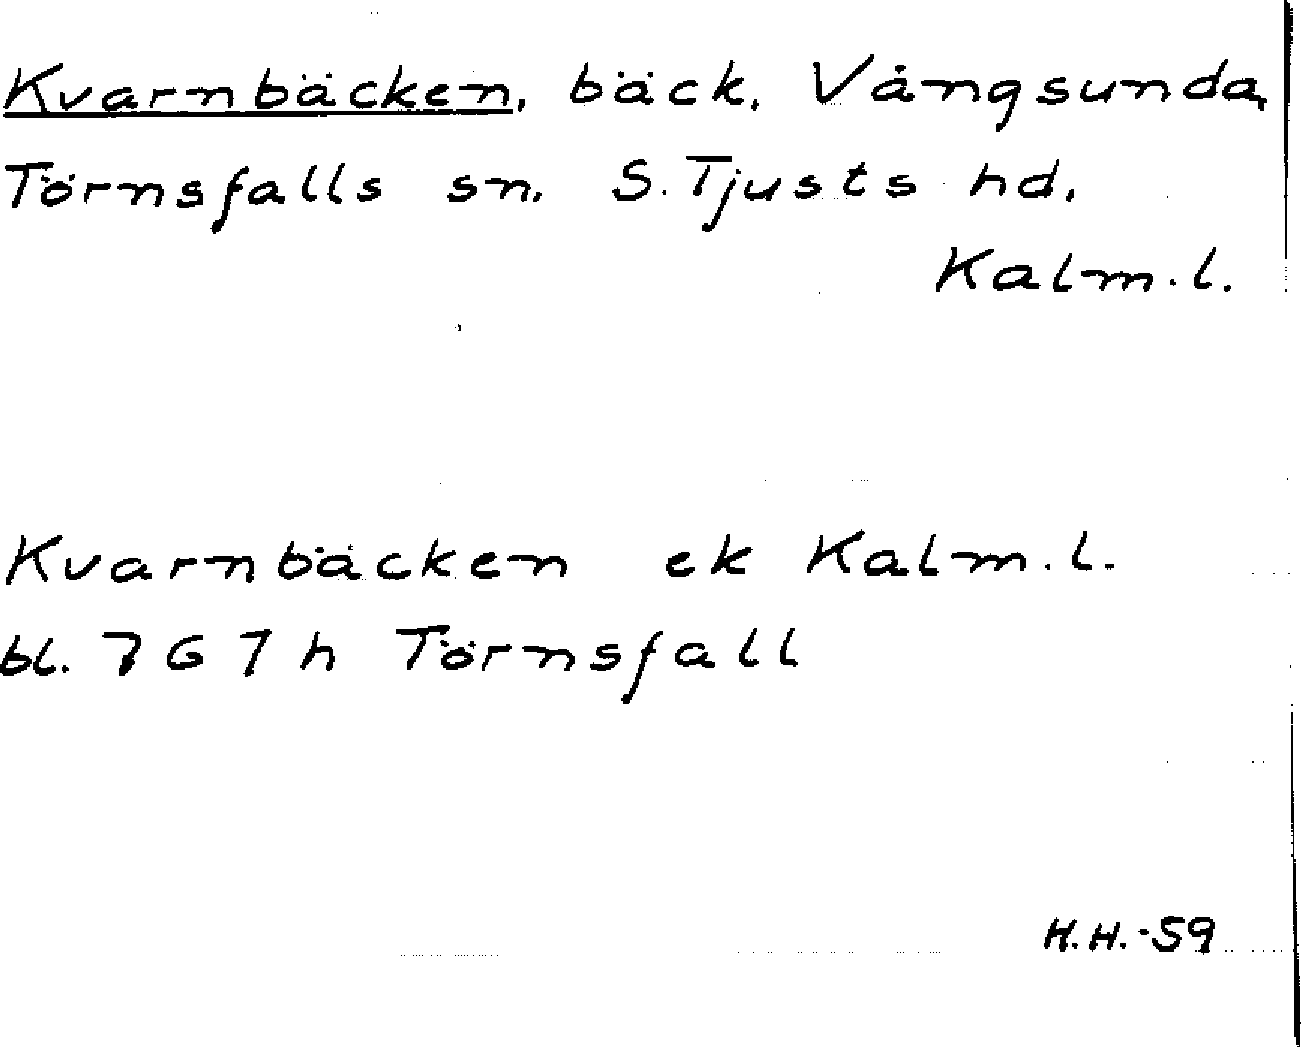 Kvarnbäcken, bäck, Vångsunda,
Törnsfalls sn, S. Tjusts hd,
Kalm. l.
Kvarnbäcken ek Kalm. l.
bl. 767 h Törnsfall
H.H.-59